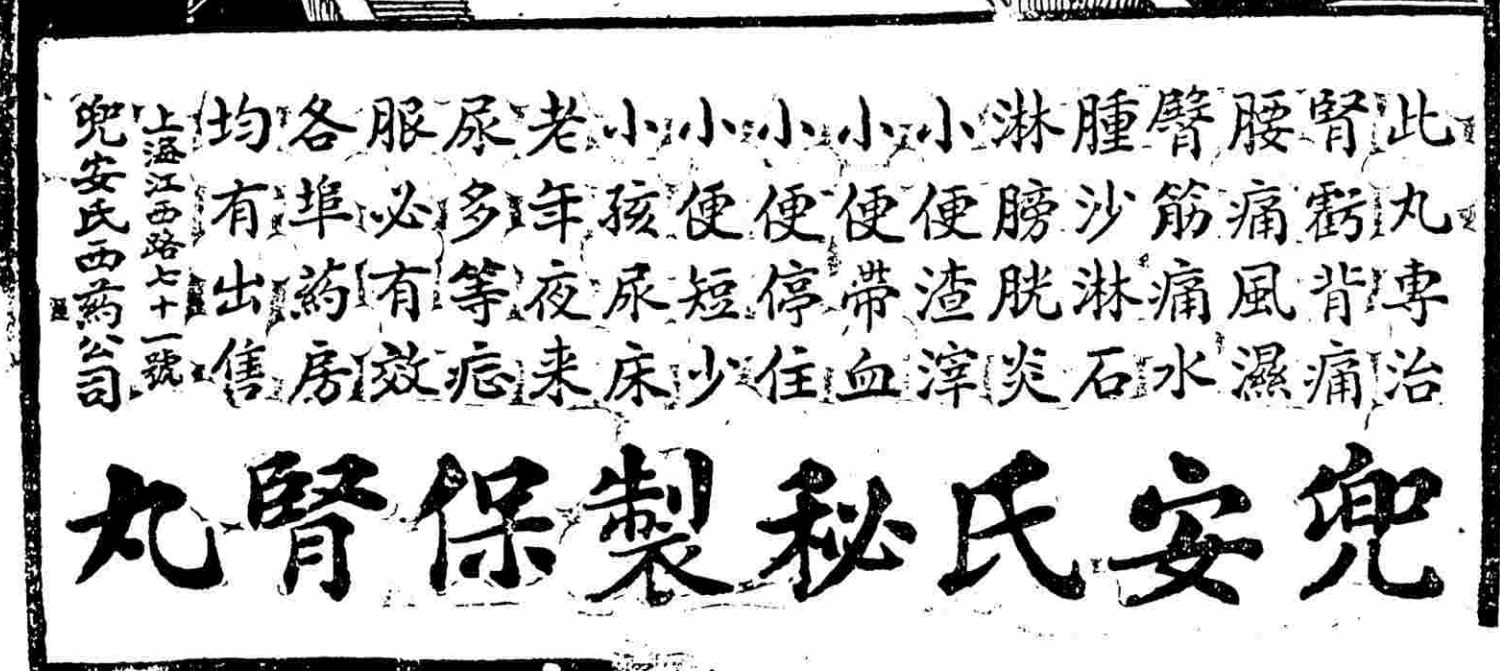 此丸專治
腎虧背痛
腰痛風濕
臀筋痛水
腫沙淋石
淋膀胱炎
小便渣滓
小便帶血
小便停住
小便短少
小孩尿床
老年夜来
尿多等症
服必有效
各埠葯房
均有出售
上海江西路七十一號
兜安氏西葯公司
兜安氏秘製保腎丸